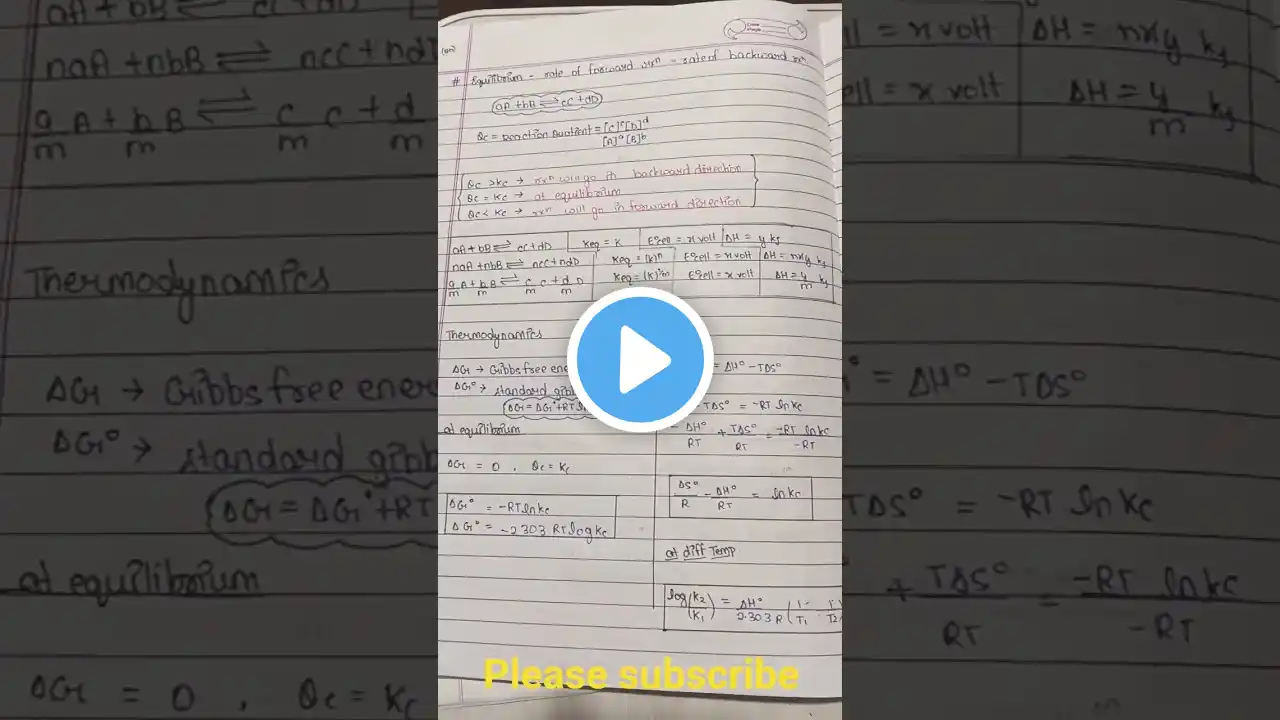 # Equilibrium - rate of forward rxn = rate of backward rxn
aA + bB ⇌ cC + dD
Qc = Reaction Quotient = [C]^c [D]^d / [A]^a [B]^b
Qc > Kc → rxn will go in backward direction
Qc = Kc → at equilibrium
Qc < Kc → rxn will go in forward direction
aA + bB ⇌ cC + dD | Keq = K | E°cell = x volt | ΔH = y kJ
naA + nbB ⇌ ncC + ndD | Keq = (K)^n | E°cell = x volt | ΔH = nxy kJ
a/m A + b/m B ⇌ c/m C + d/m D | Keq = (K)^1/m | E°cell = x volt | ΔH = y/m kJ
Thermodynamics
ΔG → Gibbs free ene
ΔG° → standard gibb
ΔG = ΔG° + RT ln
at equilibrium
ΔG = 0 , Qc = Kc
ΔG° = -RT ln Kc
ΔG° = -2.303 RT log Kc
= ΔH° - TΔS°
TΔS° = -RT ln Kc
- ΔH°/RT + TΔS°/RT = -RT ln Kc/-RT
ΔS°/R - ΔH°/RT = ln Kc
at diff Temp
log (K2/K1) = ΔH°/2.303 R (1/T1 - 1/T2
Please subscribe